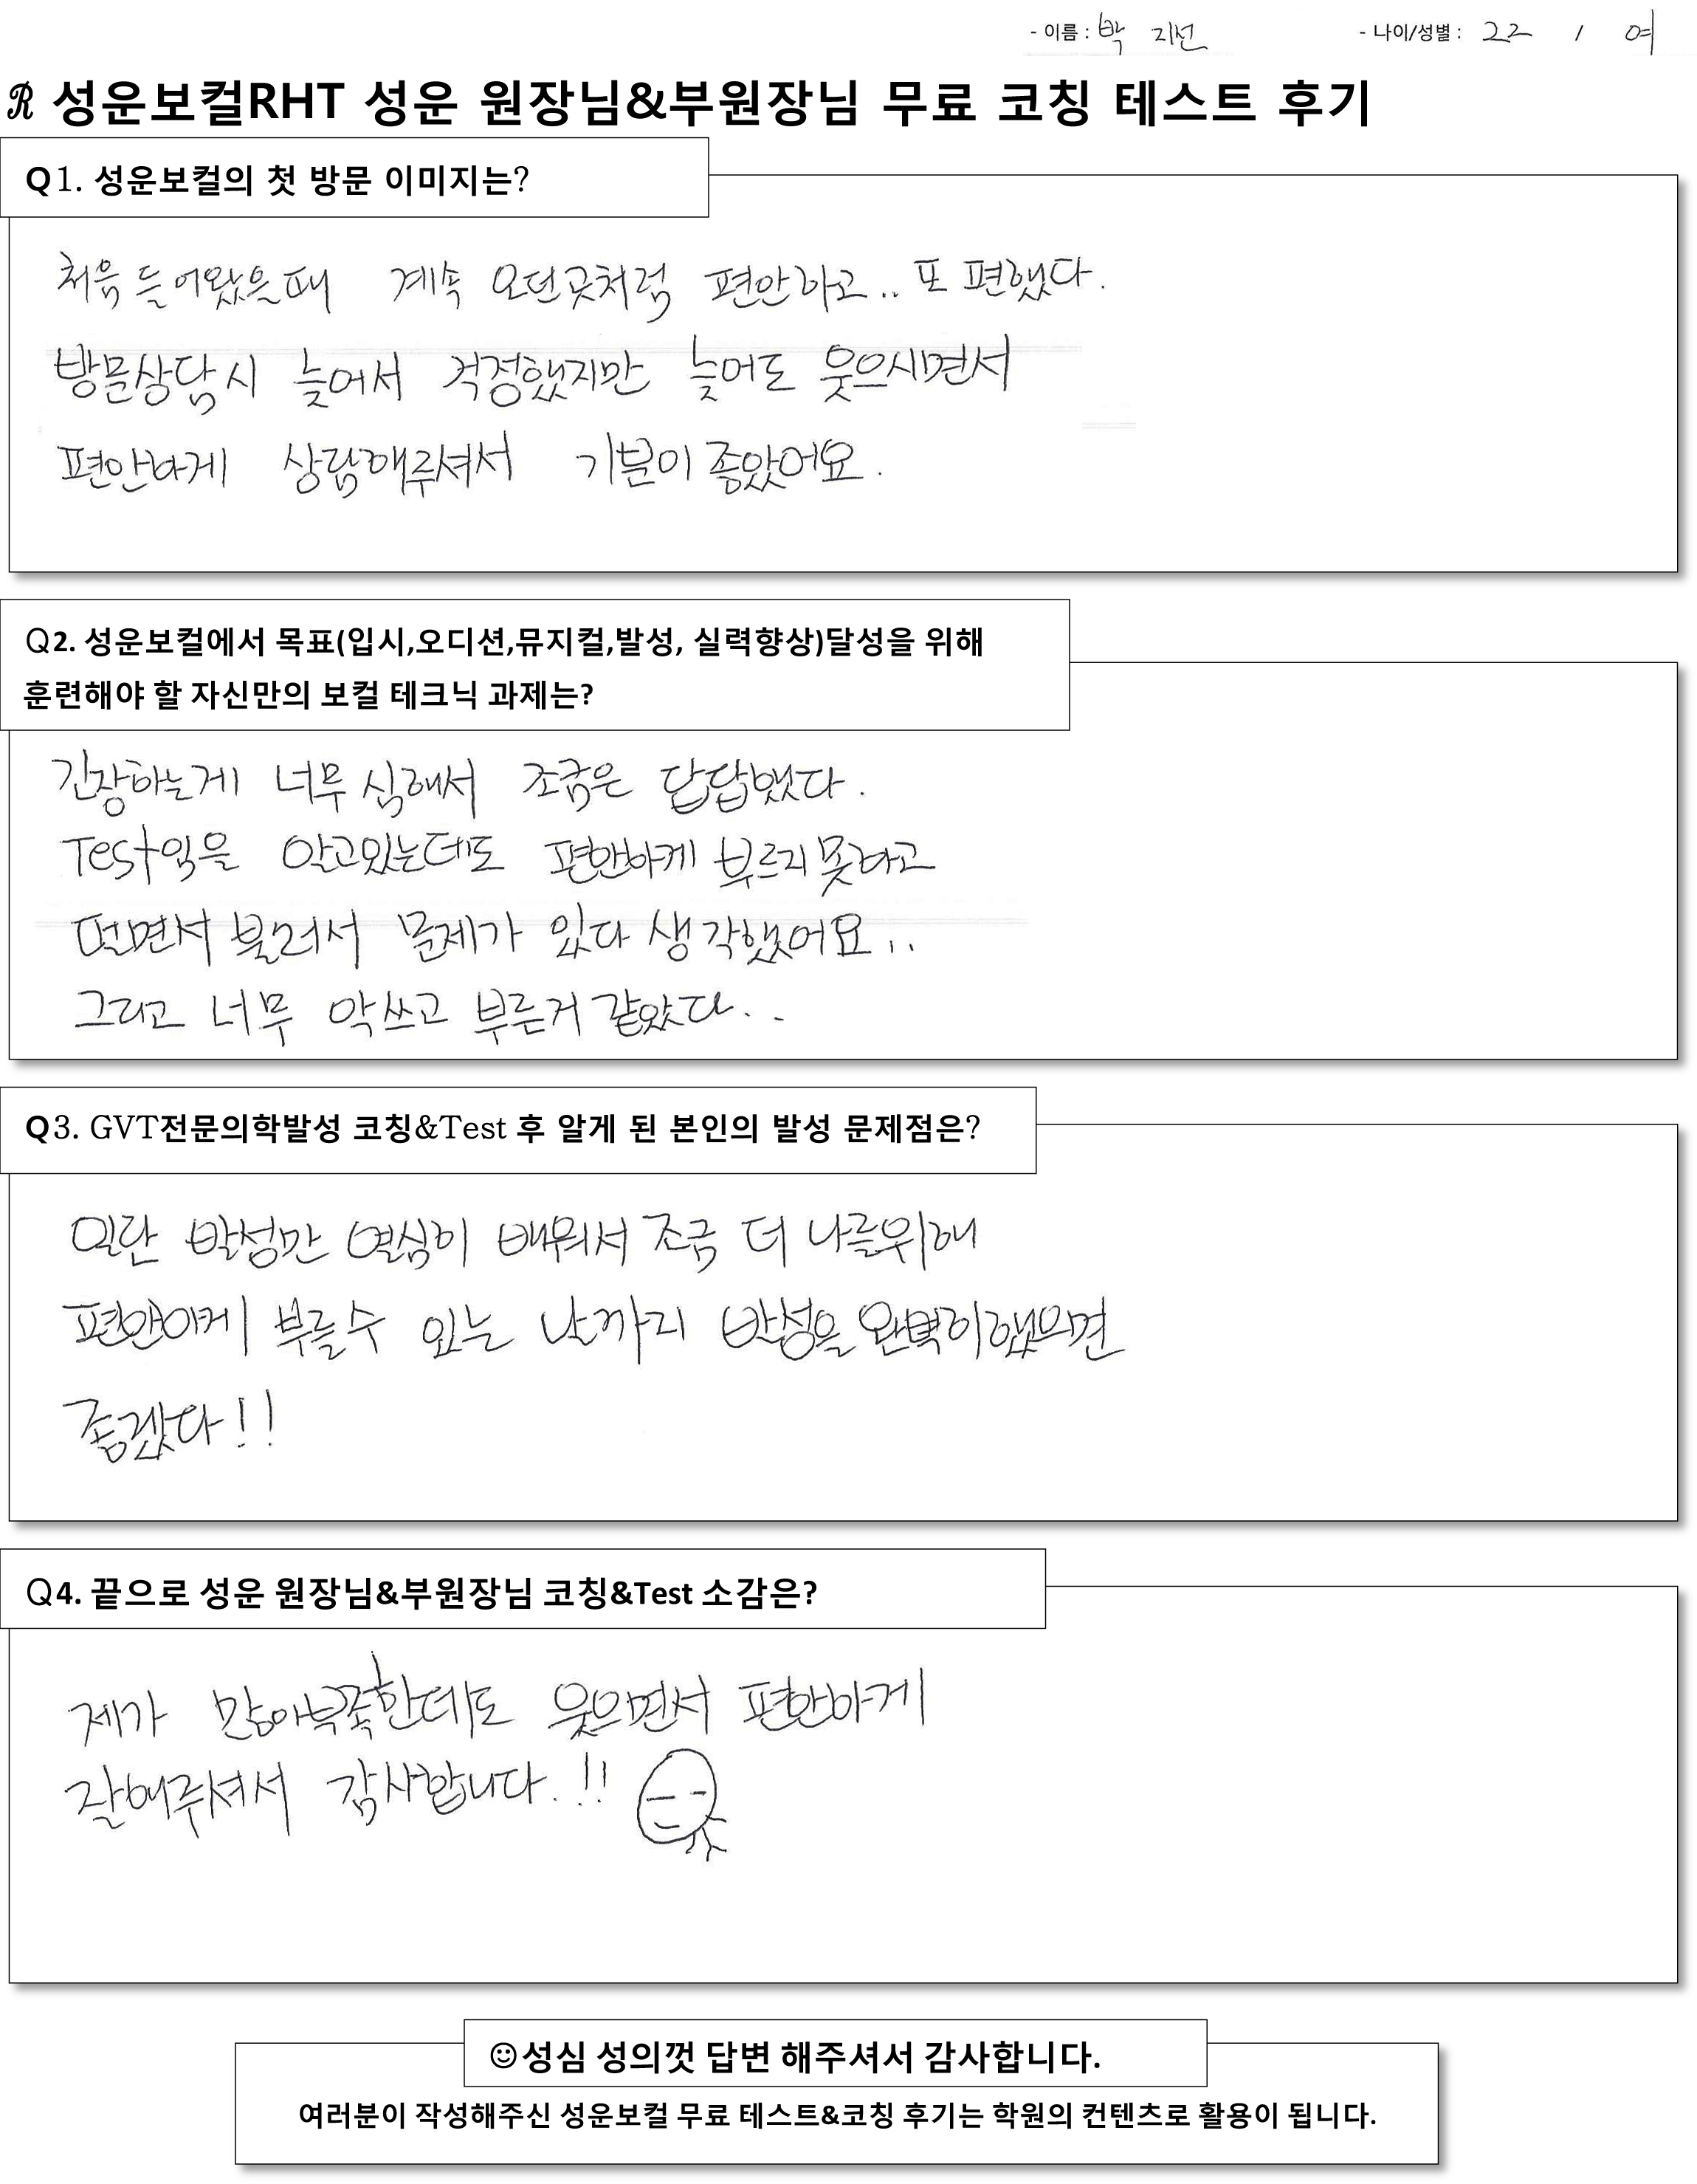 - 이름 : 박 지선 - 나이/성별 : 22 / 여
R 성운보컬RHT 성운 원장님&부원장님 무료 코칭 테스트 후기
Q1. 성운보컬의 첫 방문 이미지는?
처음 들어왔을때 계속 오던곳처럼 편안하고.. 또 편했다.
방문상담시 늦어서 걱정했지만 늦어도 웃으시면서
편안하게 상담해주셔서 기분이 좋았어요.
Q2. 성운보컬에서 목표(입시,오디션,뮤지컬,발성, 실력향상)달성을 위해
훈련해야 할 자신만의 보컬 테크닉 과제는?
긴장하는게 너무 심해서 조금은 답답했다.
Test임을 알고있는데도 편안하게 부르지 못하고
떨면서 불러서 문제가 있다 생각했어요..
그리고 너무 악쓰고 부른거 같았다..
Q3. GVT전문의학발성 코칭&Test 후 알게 된 본인의 발성 문제점은?
일단 발성만 열심히 배워서 조금 더 나를위해
편안하게 부를수 있는 날까지 발성을 완벽히했으면
좋겠다!!
Q4. 끝으로 성운 원장님&부원장님 코칭&Test 소감은?
제가 많이부족한데도 웃으면서 편안하게
잘해주셔서 감사합니다.!!
☺성심 성의껏 답변 해주셔서 감사합니다.
여러분이 작성해주신 성운보컬 무료 테스트&코칭 후기는 학원의 컨텐츠로 활용이 됩니다.